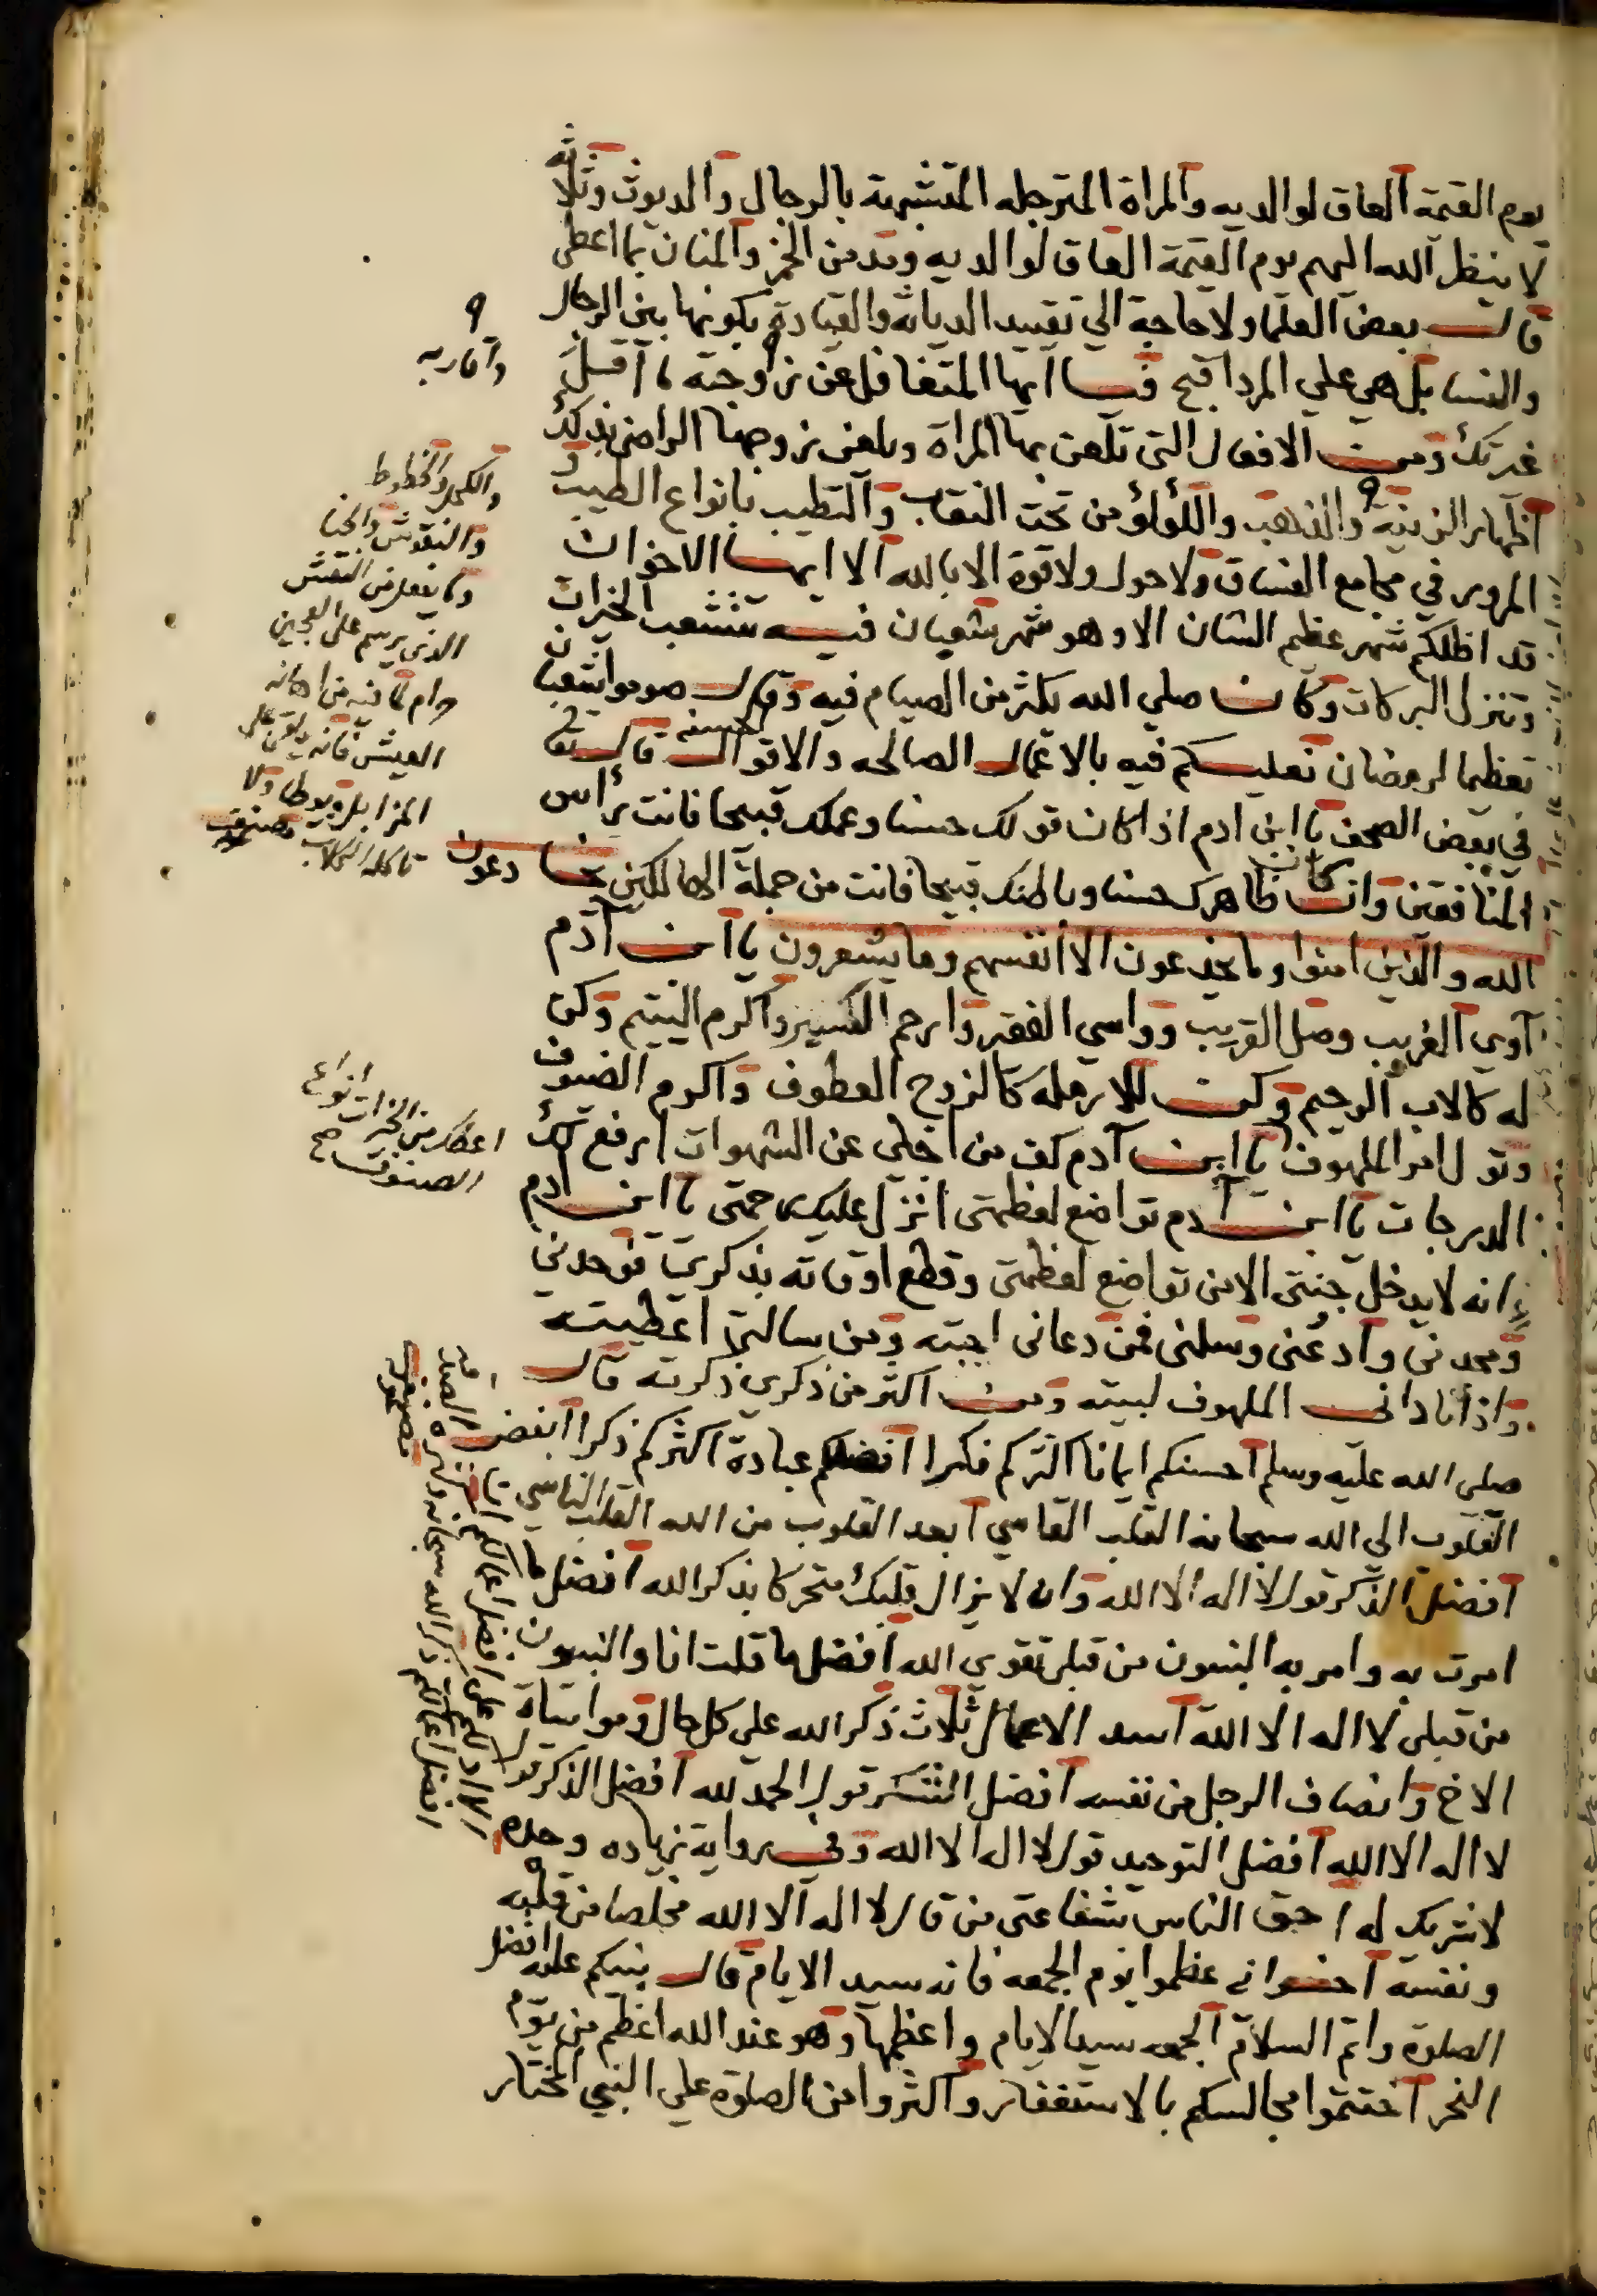 يوم القيمة العاق لوالديه والمراة المترجله المتشبهة بالرجال والديوث وثلاثة
لا ينظر الله اليهم يوم القيمة العاق لوالديه ومدمن الخمر والمنان بما اعطى
قال بعض العلما ولا حاجة الي تقييد الدياثه والقيادة بكونها بين الرجال
والنسا بل هي علي المرد اقبح فيا ايها المتغافل عن زوجته ما اقل
غيرتك ومن الافعال التي تلعن بها المراة ويلعن زوجها الراضي بذلك
اظهار الزينة والذهب واللؤلؤ من تحت النقاب والتطيب بانواع الطيب
المرور في مجامع الفساق ولا حول ولا قوة الا بالله الا ايها الاخوان
قد اظلكم شهر عظيم الشان الا وهو شهر شعبان فيه تتشعب الخيرات
وتنزل البركات وكان صلي الله يكثر من الصيام فيه وقال صوموا شعبان
تعظيما لرمضان فعليكم فيه بالاعمال الصالحه والاقوال الحسنه قال تعا
في بعض الصحف يا ابن ادم اذا كان قولك حسنا وعملك قبيحا فانت راس
المنافقين وان كان ظاهرك حسنا وباطنك قبيحا فانت من جملة الهالكين يخادعون
الله والذين امنوا وما يخدعون الا انفسهم وما يشعرون يا ابن آدم
آوي الغريب وصل القريب وواسي الفقير وارحم الكسير واكرم اليتيم وكن
له كالاب الرحيم وكن للارمله كالزوج العطوف واكرم الضيوف
وتول امر الملهوف يا ابن آدم كف من اجلي عن الشهوات ارفع لك
الدرجات يا ابن آدم تواضع لعظمتي انزل عليك رحمتي يا ابن ادم
انه لا يدخل جنتي الا من تواضع لعظمتي وقطع اوقاته بذكري فوحدني
ومجدني وادعني وسلني فمن دعاني اجبته ومن سالني اعطيته
واذا ناداني الملهوف لبيته ومن اكثر من ذكري ذكرته قال
صلي الله عليه وسلم احسنكم ايمانا اكثركم فكرا افضلكم عبادة اكثركم ذكرا ابغض
القلوب الي الله سبحانه القلب القاسي ابعد القلوب من الله القلب الناسي
افضل الذكر قول لا اله الا الله وان لا يزال قلبك متحركا بذكر الله افضل ما
امرت به وامر به النبيون من قبل تقوي الله افضل ما قلت انا والنبيون
من قبلي لا اله الا الله اسد الاعمال ثلاث ذكر الله علي كل حال ومواساة
الاخ وانصاف الرجل من نفسه افضل الشكر قول الحمد لله افضل الذكر قول
لا اله الا الله افضل التوحيد قول لا اله الا الله وفي رواية زياده وحده
لا شريك له احق الناس بشفاعتي من قال لا اله الا الله مخلصا من قلبه
ونفسه اخواني عظموا يوم الجمعه فانه سيد الايام قال نبيكم عليه افضل
الصلوة واتم السلام الجمعه سيد الايام واعظمها وهو عند الله اعظم من يوم
النحر اختموا مجالسكم بالاستغفار واكثروا من الصلوة علي النبي المختار
واقاربه
والكحل والخطوط
والنقوش والحنا
وما يفعل من النقش
الذي يرسم على العجين
حرام لما فيه من اهانه
العيش فانه يلقي على
المزابل ويوطا ولا
تاكله الكلاب
انواع
اعطك من الخيرات
الصنوف صح